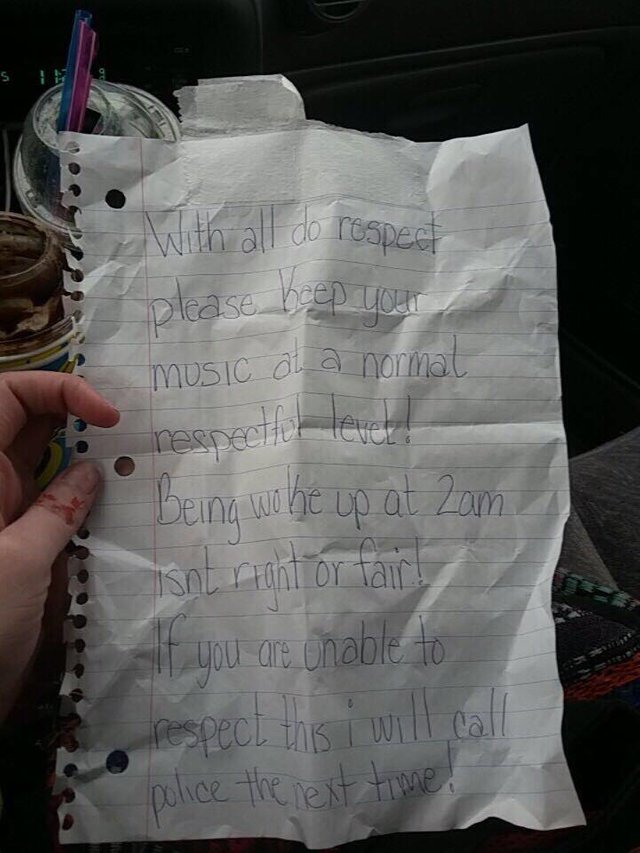 With all do respect
please keep your
music at a normal
respectful level!
Being woke up at 2am
isnt right or fair!
If you are unable to
respect this i will call
police the next time!